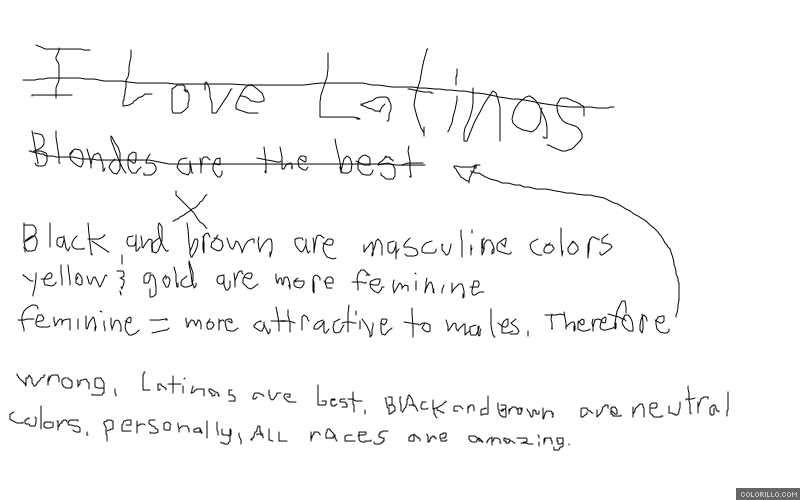 I Love Latinas
Blondes are the best
Black and brown are masculine colors
yellow & gold are more feminine
feminine = more attractive to males. Therefore
wrong, Latinas are best, BlAck and Brown are neutral
colors, personally, ALL rACES are amazing.
COLORILLO.COM